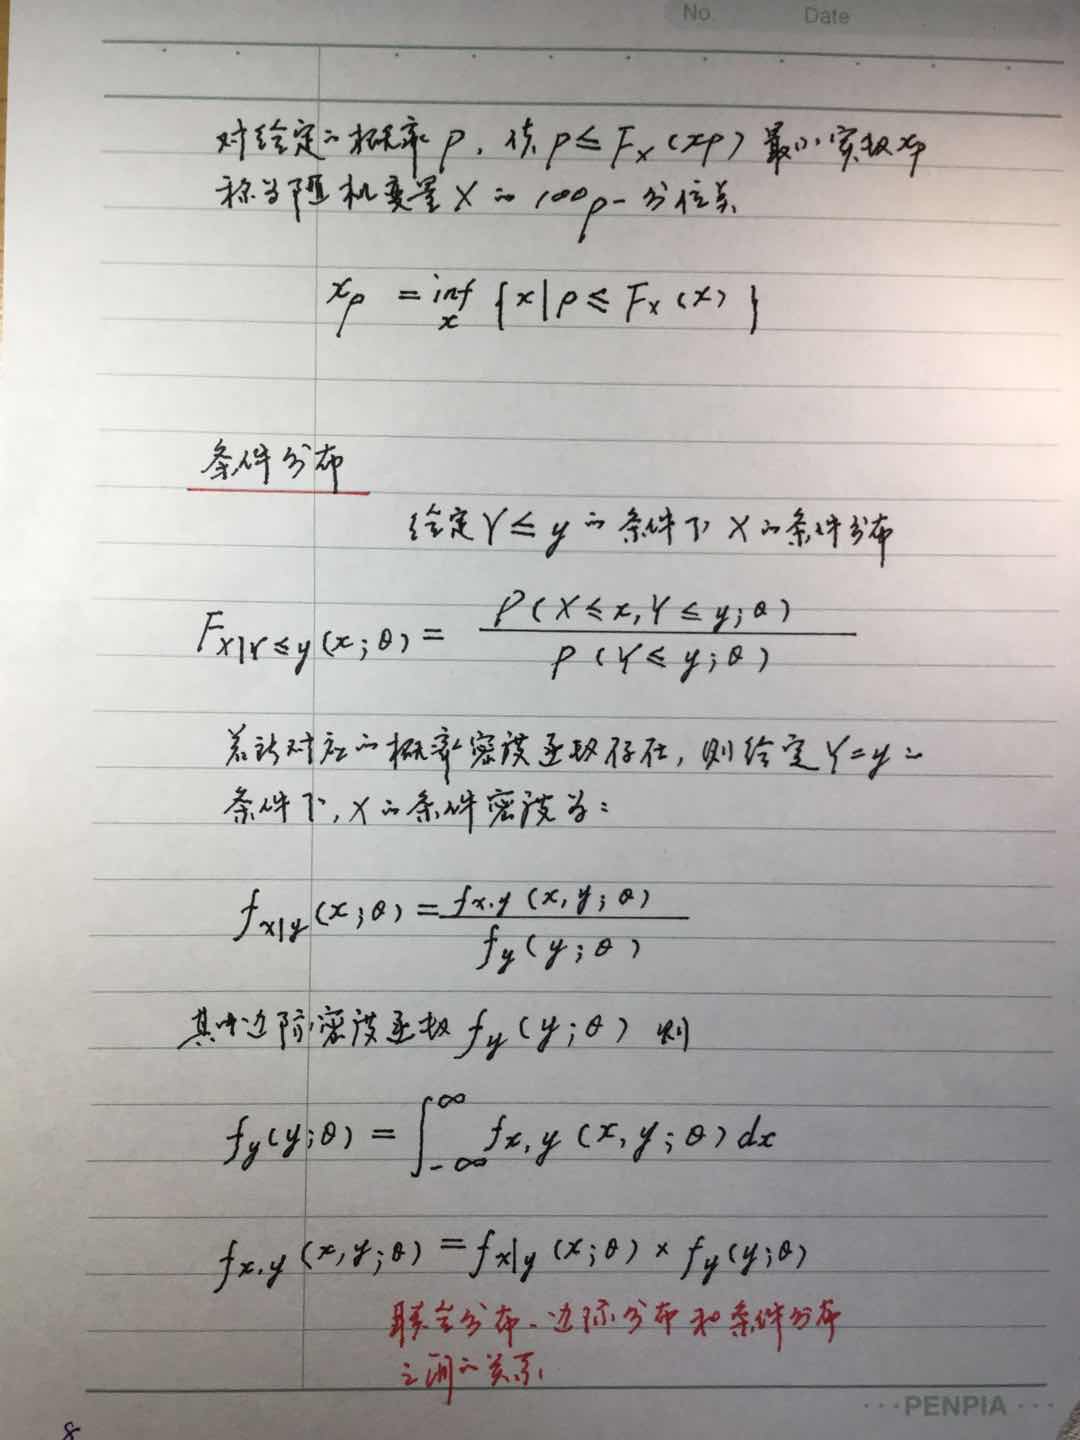 No. Date
对给定的概率p,使p≤F_X(x_p)最小实数x_p
称为随机变量X的100p-分位点
x_p = inf_x {x|p≤F_X(x)}
条件分布
给定Y≤y的条件下X的条件分布
F_{X|Y≤y}(x;θ) = P(X≤x,Y≤y;θ) / P(Y≤y;θ)
若所对应的概率密度函数存在,则给定Y=y的
条件下,X的条件密度为:
f_{x|y}(x;θ) = f_{x,y}(x,y;θ) / f_y(y;θ)
其中边际密度函数 f_y(y;θ) 则
f_y(y;θ) = ∫_{-∞}^{∞} f_{x,y}(x,y;θ)dx
f_{x,y}(x,y;θ) = f_{x|y}(x;θ) × f_y(y;θ)
联合分布、边际分布和条件分布
之间的关系.
PENPIA
8